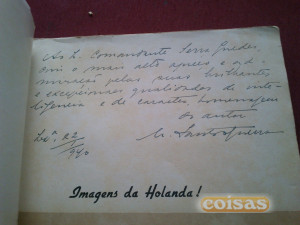 Ao L. Comandante Serra Guedes,
com o mais alto apreço e ad-
miração pelas suas brilhantes
e excepcionaes qualidades de inte-
ligencia e de caracter, homenagem
do autor
Lxª. 22
Imagens da Holanda!
coisas